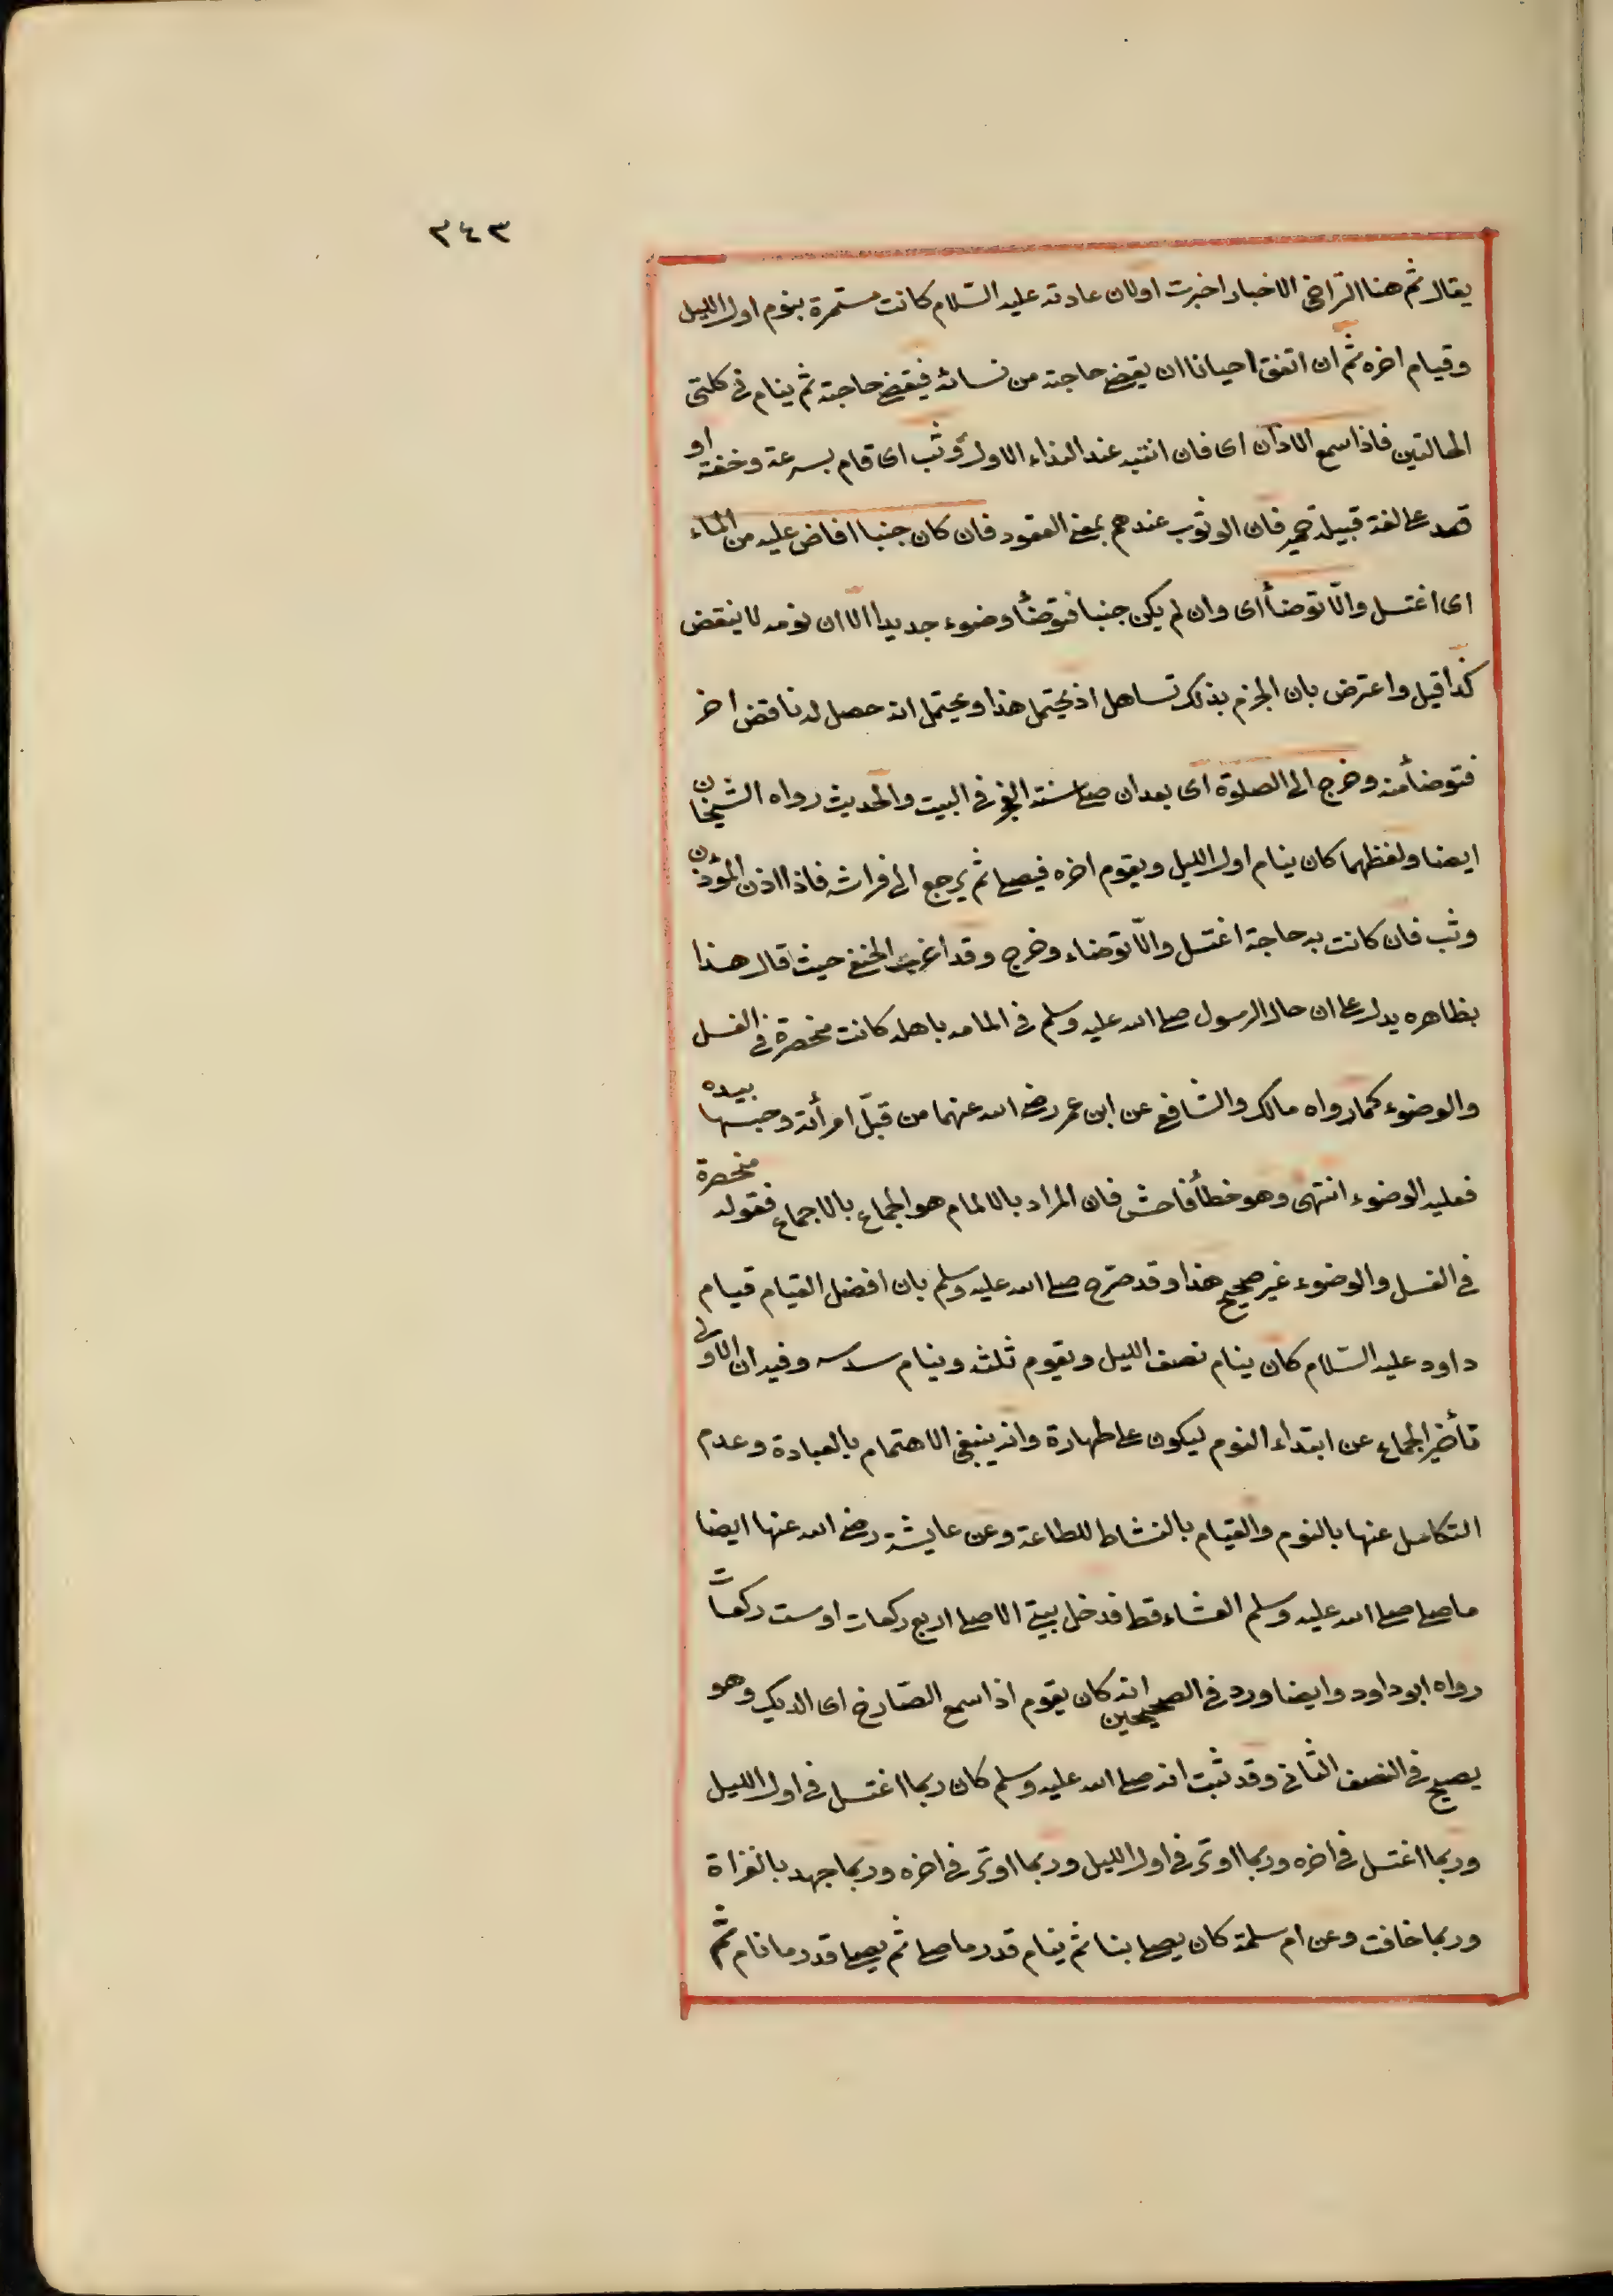 ٣٤٣
يقال ثم هنا التراخى الاخبار اخبرت اولا ان عادته عليه السّلام كانت مستمرة بنوم اول الليل
وقيام اخره ثم ان اتفق احيانا ان يقضى حاجته من نسائه فيقضى حاجته ثم ينام فى كلتى
الحالتين فاذا سمع الاذان اى فان انتبه عند النداء الاول وثب اى قام بسرعة وخفة او
قعد على لغة قبيلة حمير فان الوثوب عندهم بمعنى القعود فان كان جنبا افاض عليه من الماء
اى اغتسل والّا توضأ اى وان لم يكن جنبا فتوضأ وضوء جديدا الّا ان نومه لا ينقض
كذا قيل واعترض بان الجزم بذلك تساهل اذ يحتمل هذا ويحتمل انه حصل له ناقض اخر
فتوضأ منه وخرج الى الصلوة اى بعد ان صلى سنة الفجر فى البيت والحديث رواه الشيخان
ايضا ولفظهما كان ينام اول الليل ويقوم اخره فيصلى ثم يرجع الى فراشه فاذا اذن المؤذن
وثب فان كانت به حاجة اغتسل والّا توضاء وخرج وقد اغرب الحنفى حيث قال هذا
بظاهره يدل على ان حال الرسول صلى الله عليه وسلم فى المامه باهله كانت منحصرة فى الغسل
والوضوء كما رواه مالك والشافعى عن ابن عمر رضى الله عنهما من قبّل امرأته وجسها بيده
فعليه الوضوء انتهى وهو خطأ فاحش فان المراد بالالمام هو الجماع بالاجماع فقوله منحصرة
فى الغسل والوضوء غير صحيح هذا وقد صرّح صلى الله عليه وسلم بان افضل القيام قيام
داود عليه السّلام كان ينام نصف الليل ويقوم ثلثه وينام سدسه وفيه ان الاولى
تأخير الجماع عن ابتداء النوم ليكون على طهارة وانه ينبغى الاهتمام بالعبادة وعدم
التكاسل عنها بالنوم والقيام بالنشاط للطاعة وعن عايشة رضى الله عنها ايضا
ما صلى صلى الله عليه وسلم العشاء قط فدخل بيتى الا صلى اربع ركعات او ست ركعات
رواه ابو داود وايضا ورد فى الصحيحين انه كان يقوم اذا سمع الصّارخ اى الديك وهو
يصيح فى النصف الثانى وقد ثبت انه صلى الله عليه وسلم كان ربما اغتسل فى اول الليل
وربما اغتسل فى اخره وربما اوتر فى اول الليل وربما اوتر فى اخره وربما جهر بالقراة
وربما خافت وعن ام سلمة كان يصلى بنا ثم ينام قدر ما صلى ثم يصلى قدر ما نام ثم